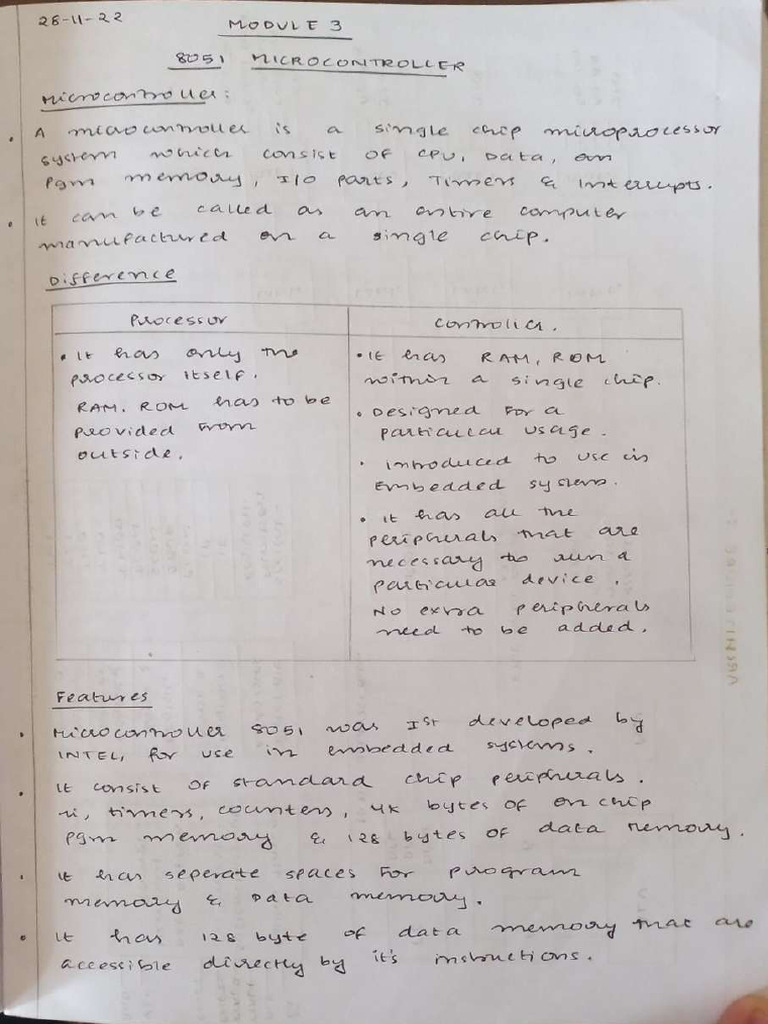 28-11-22
MODULE 3
8051 MICROCONTROLLER
Microcontroller:
• A microcontroller is a single chip microprocessor
system which consist of CPU, Data, on
Pgm memory, I/O ports, Timers & Interrupts.
• It can be called as an entire computer
manufactured on a single chip.
Difference
Processor
• It has only the
processor itself.
RAM. ROM has to be
provided from
outside.
Controller.
• It has RAM, ROM
within a single chip.
• Designed for a
particular usage.
• introduced to use in
Embedded systems.
• it has all the
peripherals that are
necessary to run a
particular device.
No extra peripherals
need to be added.
Features
• Microcontroller 8051 was Ist developed by
INTEL, for use in embedded systems.
• It consist of standard chip peripherals.
ie, timers, counters, 4K bytes of on chip
Pgm memory & 128 bytes of data memory.
• It has seperate spaces for program
memory & Data memory.
• It has 128 byte of data memory that are
accessible directly by it's instructions.